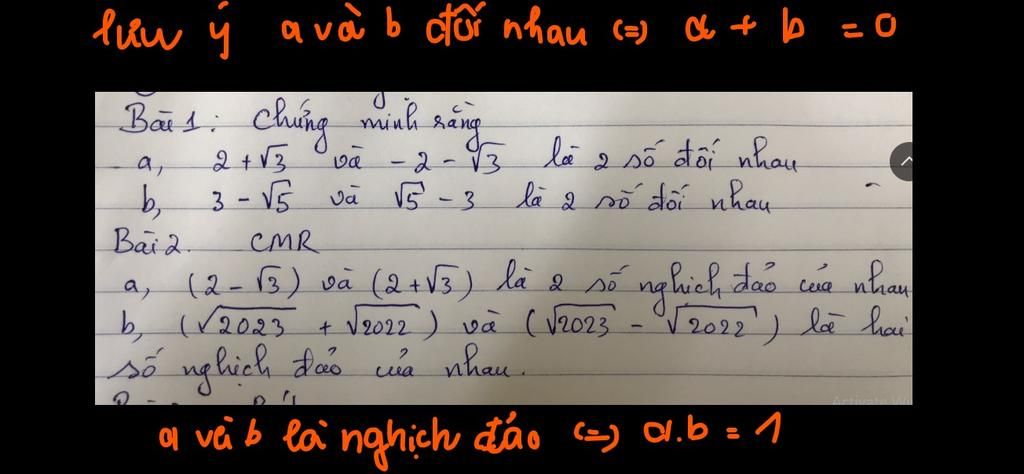 lưu ý a và b đối nhau (=) a + b = 0
Bài 1: Chứng minh rằng
a, 2 + √3 và - 2 - √3 là 2 số đối nhau
b, 3 - √5 và √5 - 3 là 2 số đối nhau
Bài 2. CMR
a, (2 - √3) và (2 + √3) là 2 số nghịch đảo của nhau
b, (√2023 + √2022) và (√2023 - √2022) là hai
số nghịch đảo của nhau.
a và b là nghịch đảo (=) a.b = 1